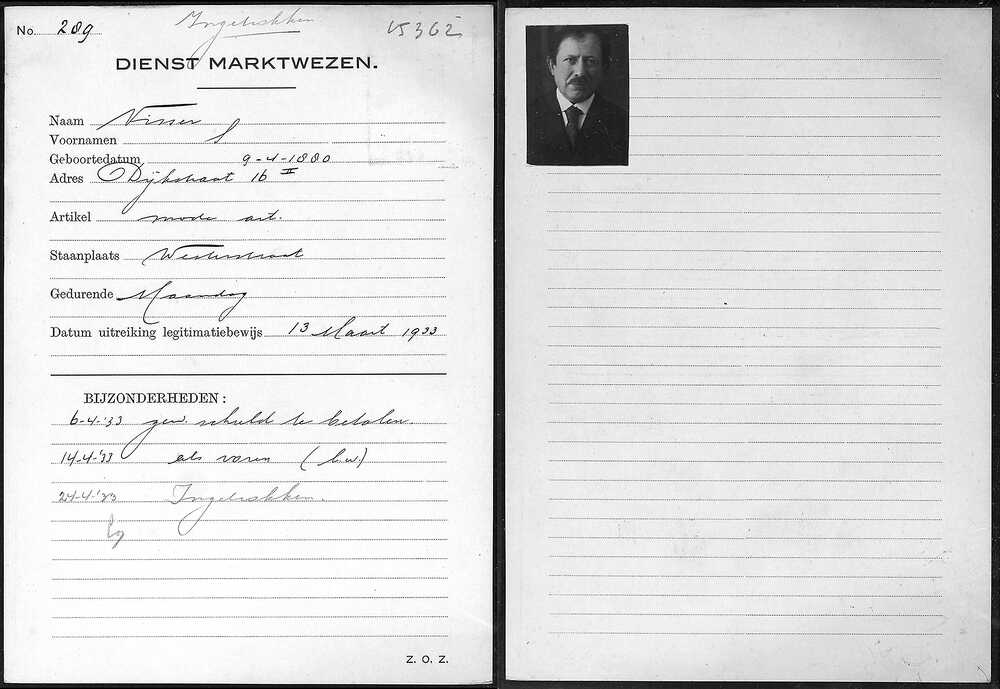 No. 289 Ingetrokken V5362
DIENST MARKTWEZEN.
Naam Visser
Voornamen S
Geboortedatum 9-4-1880
Adres O Dijkstraat 16 II
Artikel mode art.
Staanplaats Westerstraat
Gedurende Maandag
Datum uitreiking legitimatiebewijs 13 Maart 1933
BIJZONDERHEDEN:
6-4-'33 gew. schuld te betalen.
14-4-'33 als voren (l.w.)
24-4-'33 Ingetrokken.
Z. O. Z.